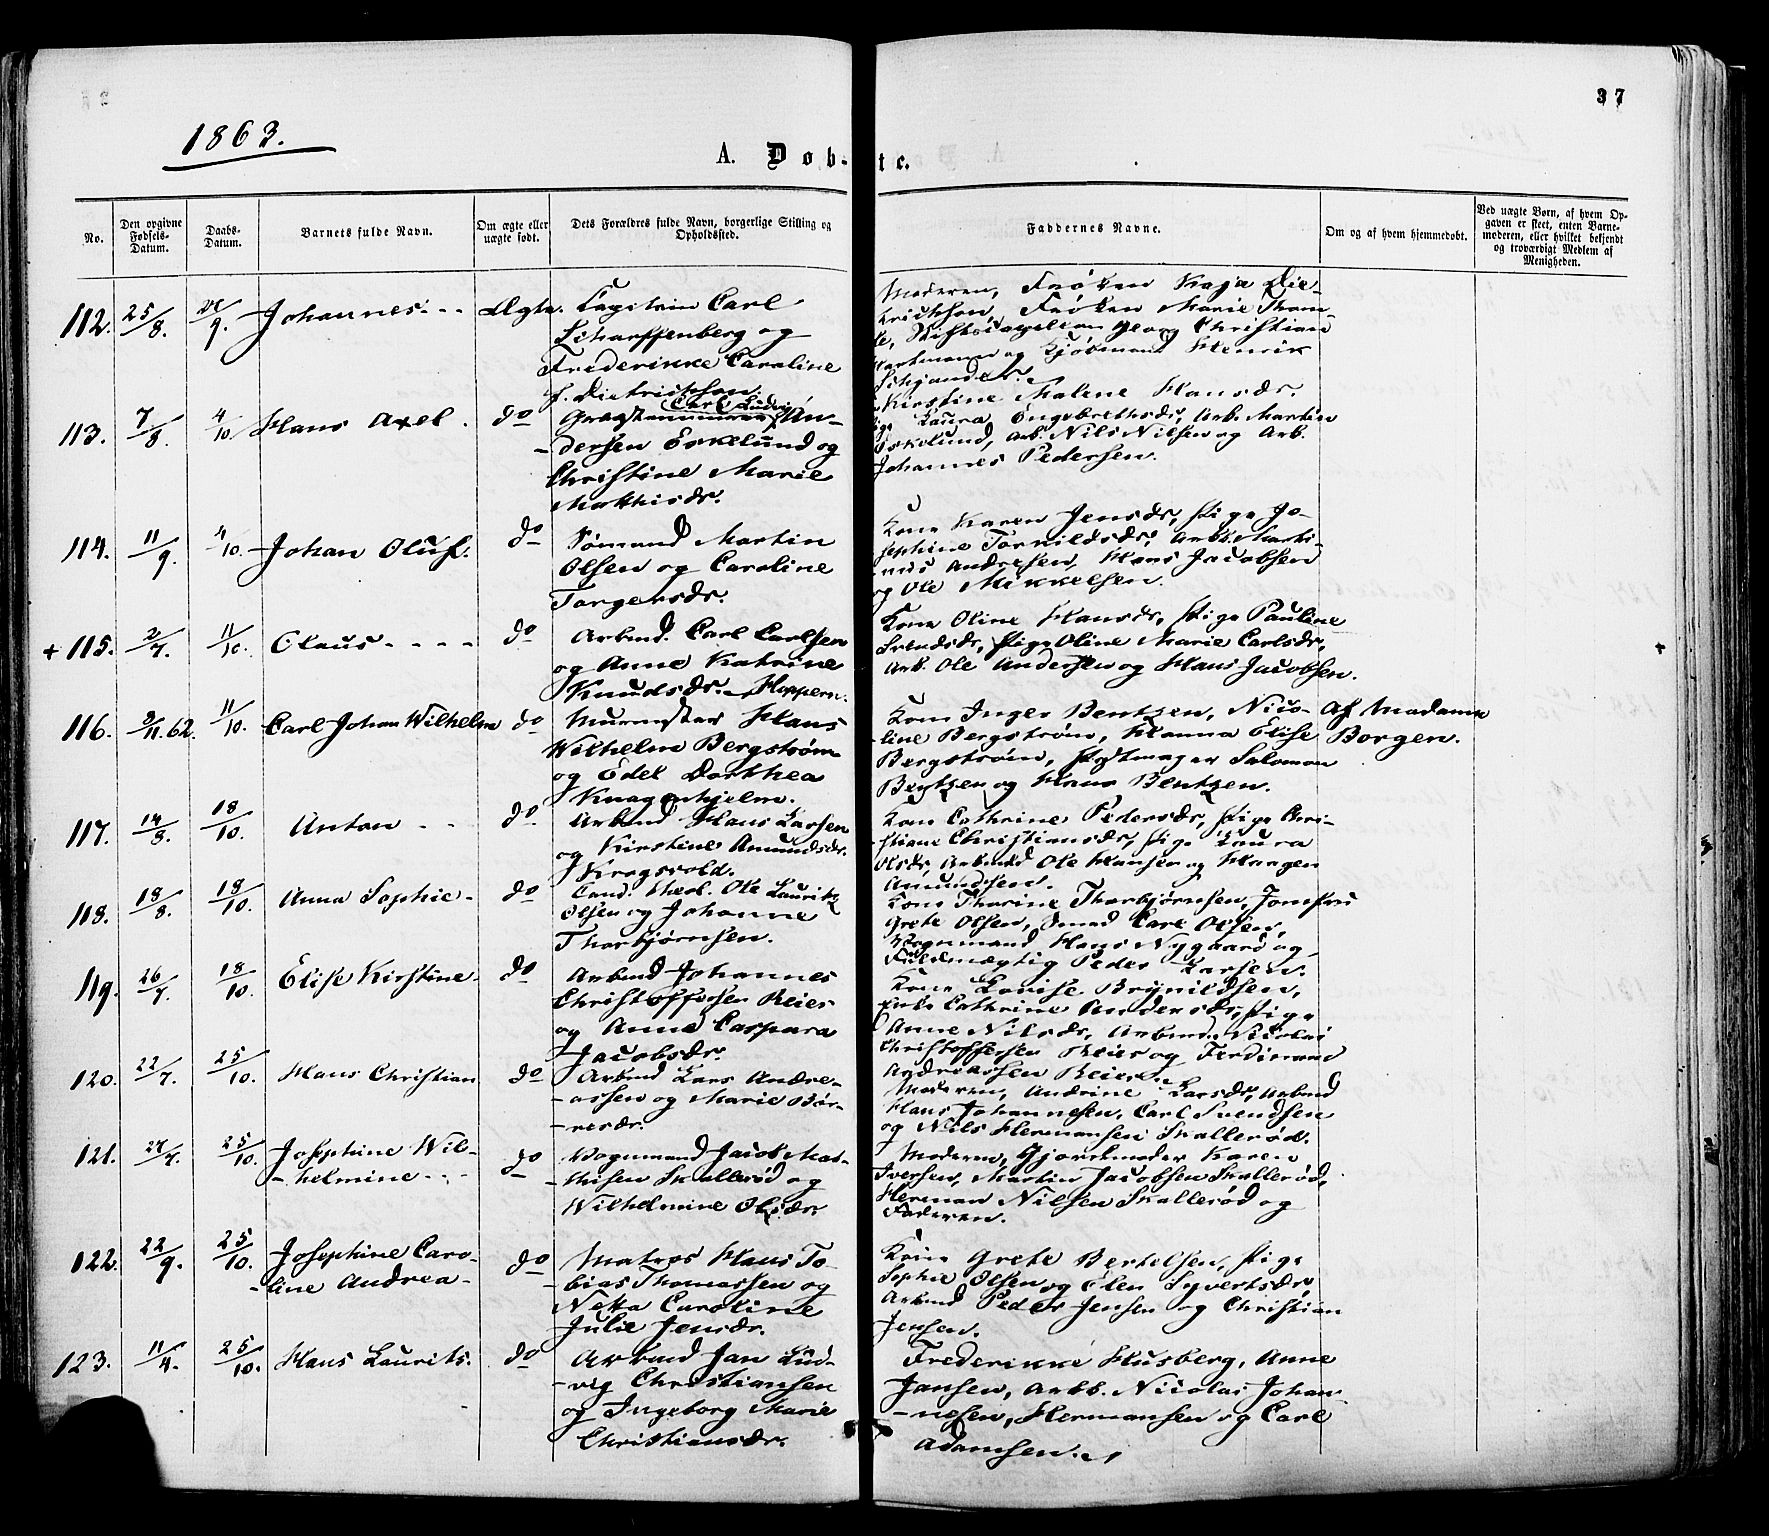 37
1863.
A. Døb-te.
No.
Den opgivne Fødsels-Datum.
Daabs-Datum.
Barnets fulde Navn.
Om ægte eller uægte født.
Dets Forældres fulde Navn, borgerlige Stilling og Opholdssted.
Faddernes Navne.
Om og af hvem hjemmedøbt.
Ved uægte Børn, af hvem Opgaven er skeet, enten Barnemoderen, eller hvilket bekjendt og troværdigt Medlem af Menigheden.
112. 25/8. /9. Johannes - - - Ægte.
Capitain Carl
Scharffenberg og
Frederikke Caroline
f. Dietrichson.
Moderen, Frøken Kaja Die-
trichson, Frøken Marie Thom-
Stiftscapellan Georg Christian
og Kjøbmand Henrik
113. 7/8. 4/10 Hans Axel. do
Carl Ludvig An-
-dersen Eskelund og
Christine Marie
Mathisdr.
Kirstine Malene Hansdr.
Laura Engebrethsdr, Arb. Martin
Eskelund, Arb. Nils Nilsen og Arb.
Johannes Pedersen.
114. 11/9. 4/10. Johan Oluf. do
Sømand Martin
Olsen og Caroline
Torgersdr.
Kone Karen Jensdr, Pige Jo-
sephine Torkildsdr, Arbb. Marti-
nus Andresen, Hans Jacobsen
og Ole Mikkelsen.
+ 115. 2/7. 11/10. Claus - - - - do
Arbmd. Carl Carlsen
og Anne Katrine
Knudsdr. Hoppern.
Kone Oline Hansdr, Pige Pauline
Svendsdr, Pige Oline Marie Carlsdr,
Arb. Ole Andersen og Hans Jacobsen. +
116. 3/11.62. 11/10. Carl Johan Wilhelm do
Murmester Hans
Wilhelm Bergstrøm
og Edel Dorthea
Knagenhjelm.
Kone Inger Bentzen, Nico-
-line Bergstrøm, Hanna Elise
Bergstrøm, Salomon
Bentzen og Hans Bentzen.
Af Madame
Borgen.
117. 14/8. 18/10. Anton - - do
Arbmd Hans Larsen
og Kirstine Amundsdr.
Krogsvold.
Kone Cathrine Pedersdr, Pige Chri-
-stiane Christiansdr, Pige Laura
Olsdr, Arbmd Ole Hansen og Haagen
Amundsen.
118. 18/8. 18/10. Anna Sophie - do
Cand. theol. Ole Lauritz
Olsen og Johanne
Thorbjørnsen.
Kone Thorine Thorbjørnsen, Jomfru
Grete Olsen, Smed Carl Olsen,
Vognmand Hans Nygaard og
Fuldmægtig Peder Larsen.
119. 26/7. 18/10. Elise Kirstine - do
Arbmd Johannes
Christoffersen Reier
og Anne Caspara
Jacobsdr.
Kone Lovise Brynildsen,
Enke Cathrine Andersdr, Pige
Anne Nilsdr, Arbmd. Nicolai
Christoffersen Reier og Ferdinand
Andreassen Reier.
120. 22/7. 25/10. Hans Christian do
Arbmd Lars Andre-
-assen og Marie Bør-
-resdr.
Moderen, Andrine Larsdr, Arbmd
Hans Johannesen, Carl Svendsen
og Nils Hermansen Skallerød.
121. 27/7. 25/10. Josephine Wil-
-helmine - - - do
Vognmand Jacob Mat-
-hisen Skallerød og
Wilhelmine Olsdr.
Moderen, Gjordemoder Karen
Iversen, Martin Jacobsen Skallerød,
Herman Nilsen Skallerød og
Faderen.
122. 22/9. 25/10. Josephine Caro-
-line Andrea - do
Matros Hans To-
bias Thomassen og
Netta Caroline
Julie Jensdr.
Kone Grete Bertelsen, Pige
Sophie Olsen og Elen Syvertsdr,
Arbmd Peder Jensen og Christian
Jensen.
123. 11/4. 25/10. Hans Laurits. do
Arbmd Jan Lud-
-vig Christiansen
og Ingeborg Marie
Christiansdr.
Frederikke Husberg, Anne
Jansen, Arbb. Nicolai Johan-
-nesen, Hermansen og Carl
Adamsen.